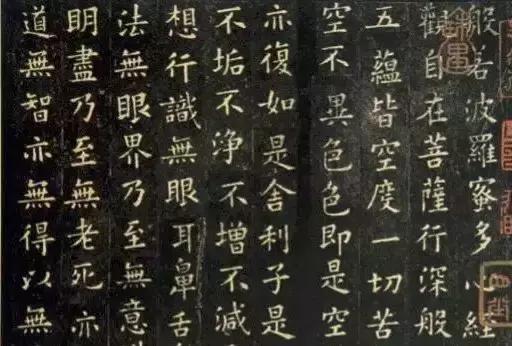 般若波羅蜜多心經
觀自在菩薩行深般
五蘊皆空度一切苦
空不異色色即是空
亦復如是舍利子是
不垢不淨不增不減
想行識無眼耳鼻舌
法無眼界乃至無意
明盡乃至無老死亦
道無智亦無得以無